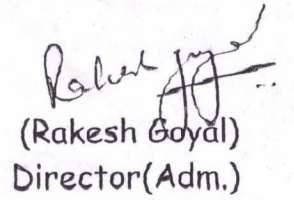 Rakesh Goyal
(Rakesh Goyal)
Director(Adm.)